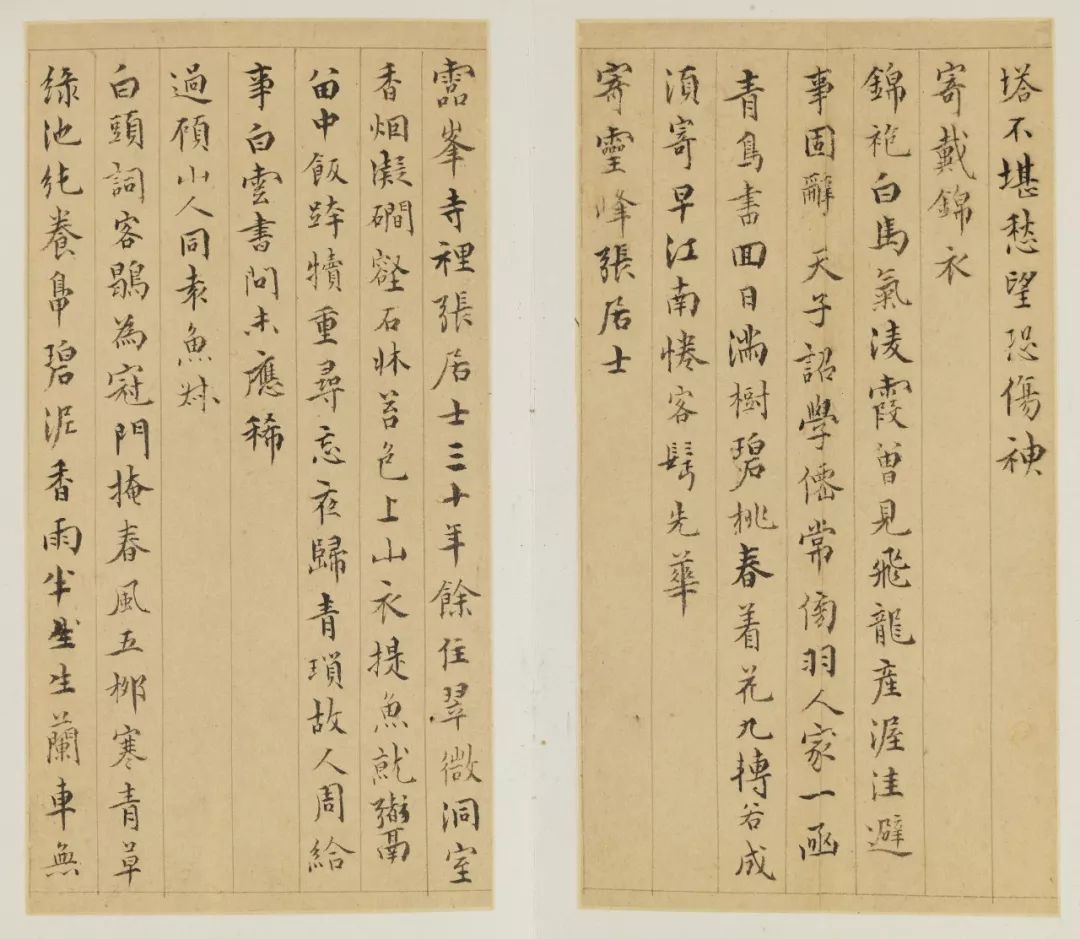 塔不堪愁望恐傷神
寄戴錦衣
錦袍白馬氣淩霞曾見飛龍産渥洼避
事固辭天子詔學僊常傍羽人家一函
青鳥書回日滿樹碧桃春着花九轉若成
須寄早江南惓客髩先華
寄靈峰張居士
靈峯寺裡張居士三十年餘住翠微洞室
香烟凝磵壑石牀苔色上山衣提魚就
畨中飯跨犢重尋忘夜歸青瑣故人周給
事白雲書問未應稀
過碩山人同袁魚
白頭詞客鶡為冠門掩春風五栁寒青草
綠池純養碧泥香雨半生蘭車無